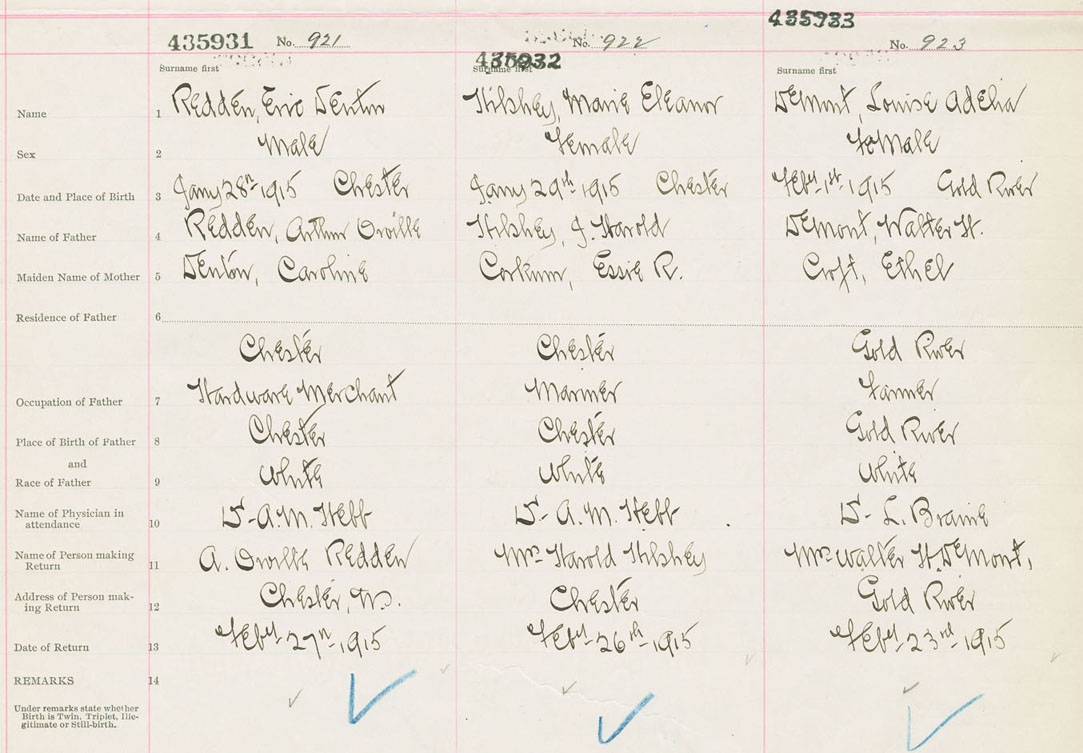 435933
435931 No. 921 No. 922 No. 923
435932
Surname first Surname first Surname first
Name 1 Redden, Eric Denton Hilshey, Marie Eleanor DeMont, Louise Adelia
Sex 2 Male Female FeMale
Date and Place of Birth 3 Jany 28th 1915 Chester Jany 29th 1915 Chester Feby 1st 1915 Gold River
Name of Father 4 Redden, Arthur Orville Hilshey, J. Harold DeMont, Walter H.
Maiden Name of Mother 5 Denton, Caroline Corkum, Essie R. Croft, Ethel
Residence of Father 6
Chester Chester Gold River
Occupation of Father 7 Hardware Merchant Mariner Farmer
Place of Birth of Father 8 Chester Chester Gold River
and
Race of Father 9 White White White
Name of Physician in
attendance 10 Dr A.M. Hebb Dr A.M. Hebb Dr L. Braine
Name of Person making
Return 11 A. Orville Redden Mrs Harold Hilshey Mrs Walter H. DeMont,
Address of Person mak-
ing Return 12 Chester, N.S. Chester Gold River
Date of Return 13 Feby 27th 1915 Feby 26th 1915 Feby 23rd 1915
REMARKS 14
Under remarks state whether
Birth is Twin, Triplet, Ille-
gitimate or Still-birth.